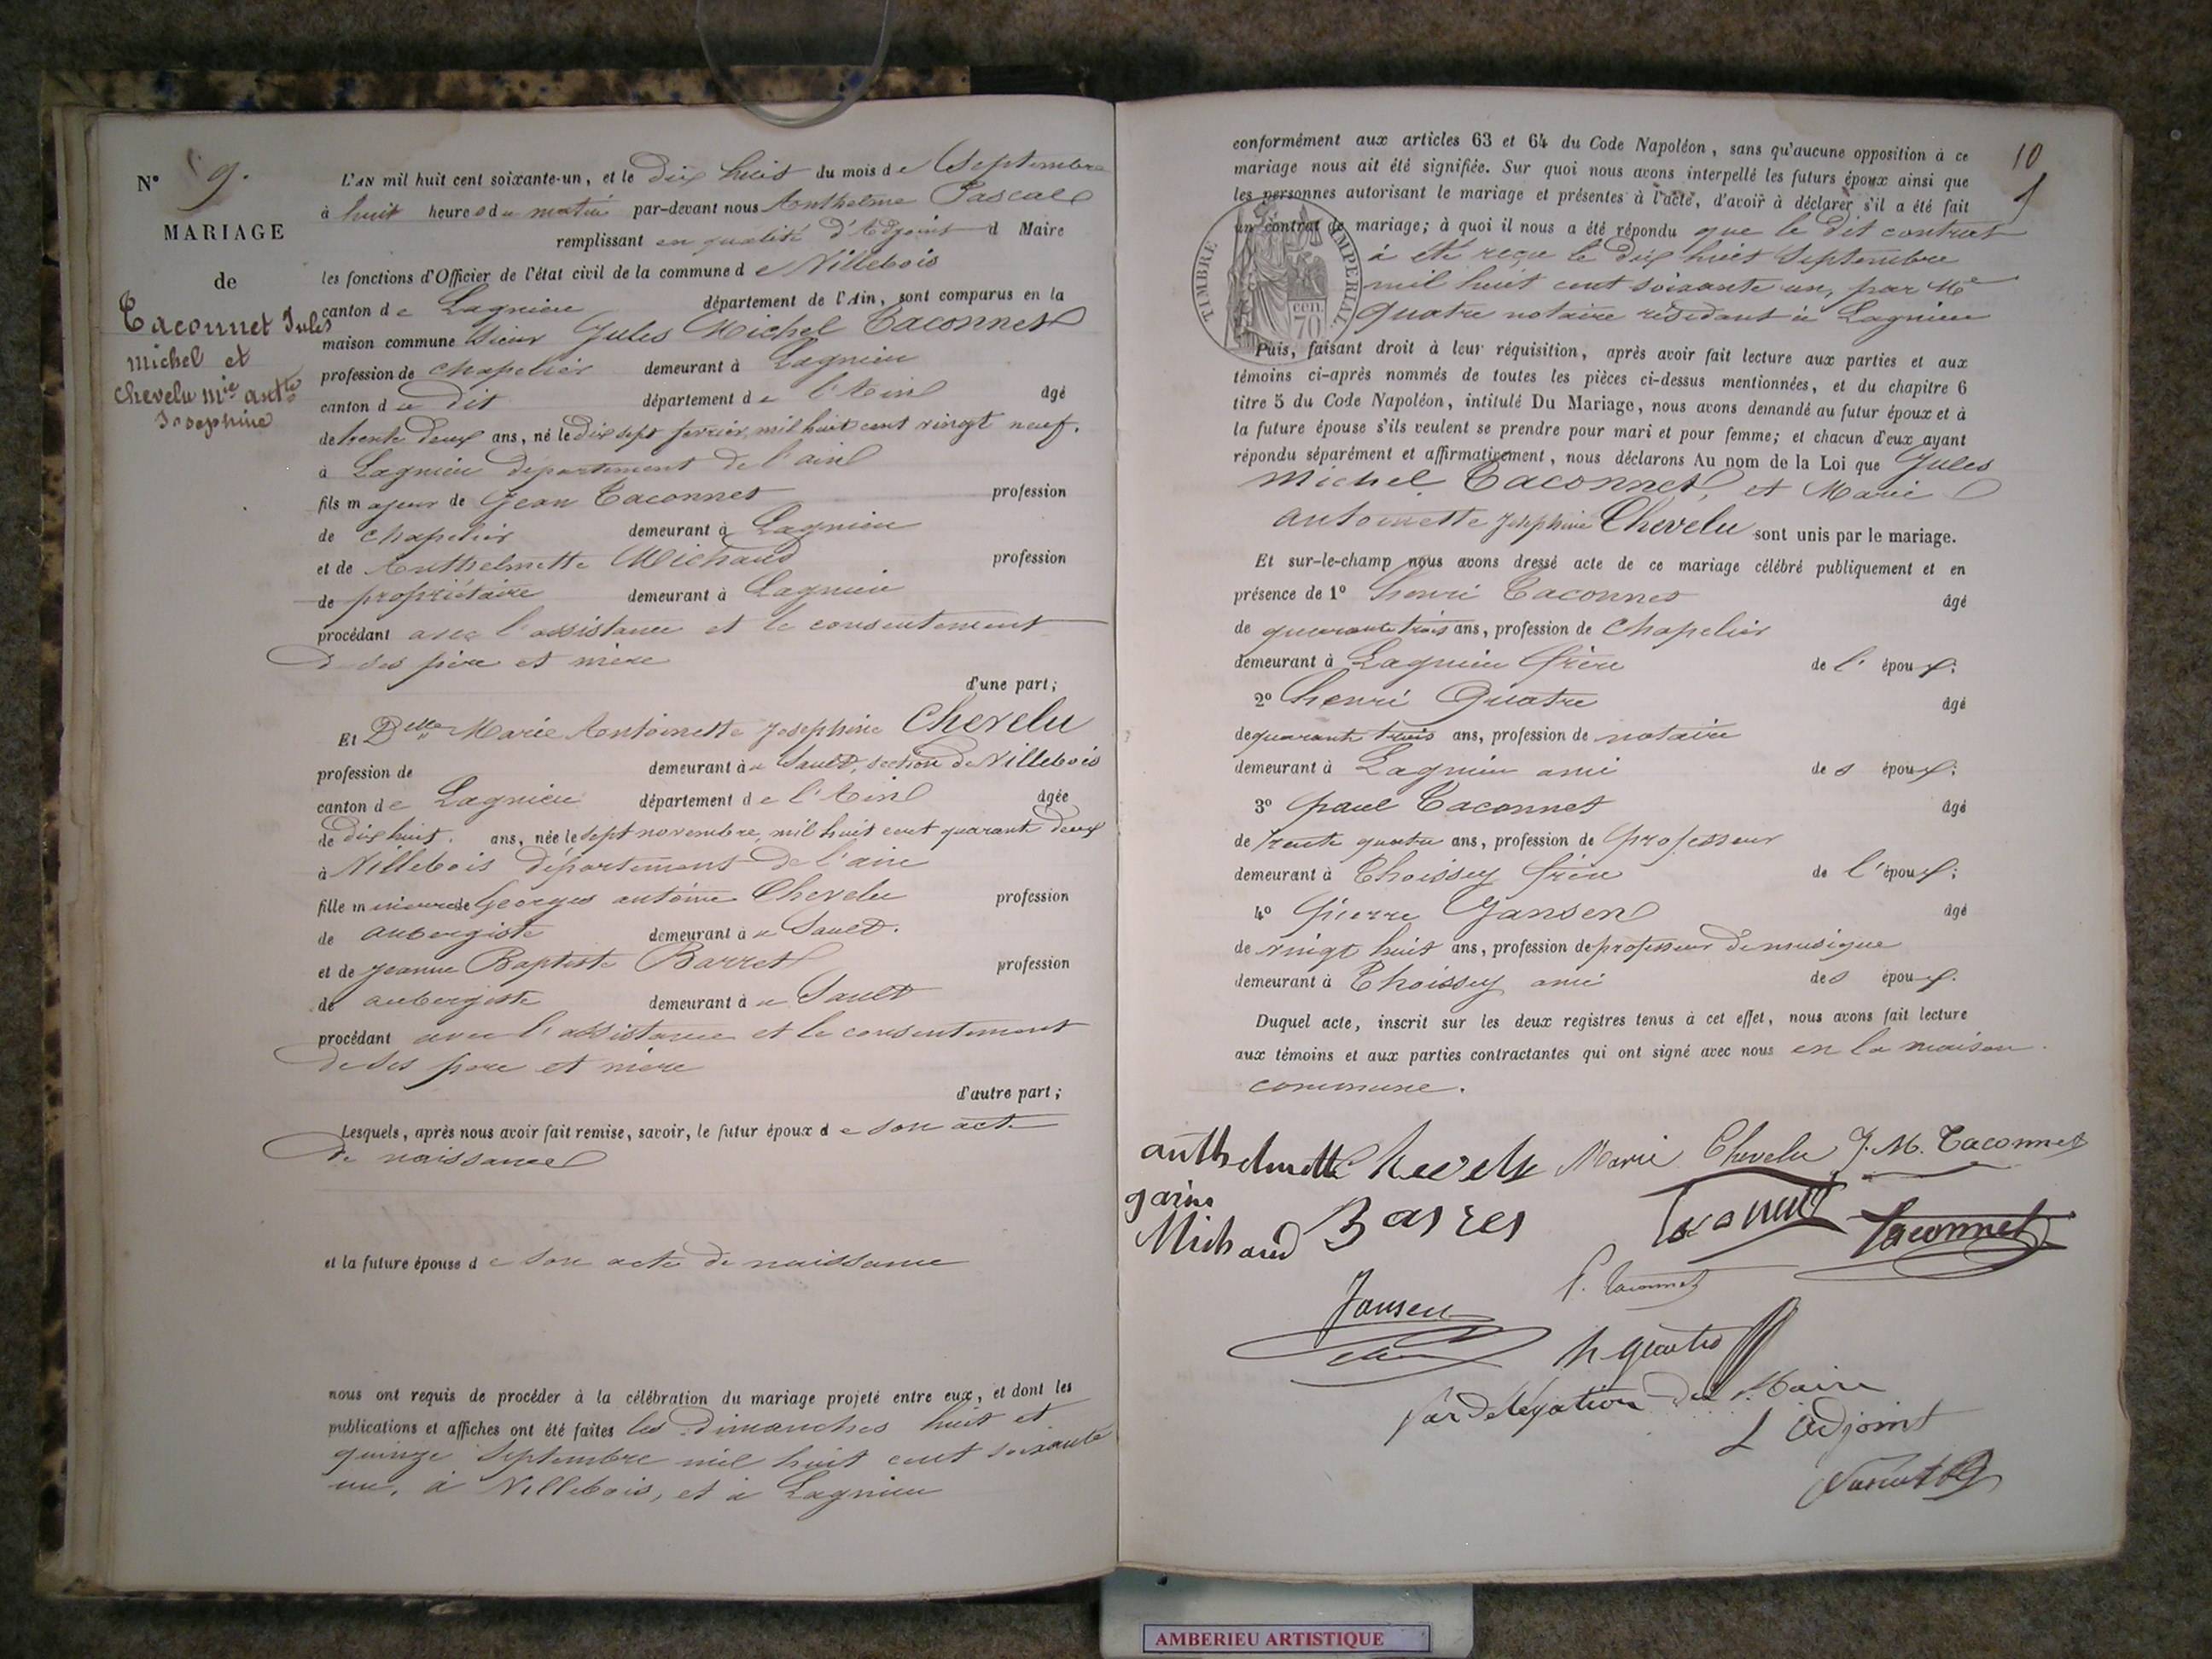 N° 9.
MARIAGE
de
Taconnet Jules
Michel et
Chevelu Mie Antte
Josephine
L'AN mil huit cent soixante-un, et le dix huit du mois de Septembre
à huit heures du matin par-devant nous Anthelme Pascal
remplissant en qualité d'Adjoint d Maire
les fonctions d'Officier de l'état civil de la commune de Villebois
canton de Lagnieu département de l'Ain, sont comparus en la
maison commune Sieur Jules Michel Taconnet
profession de chapelier demeurant à Lagnieu
canton du dit département de l'Ain âgé
de trente deux ans, né le dix sept février, mil huit cent vingt neuf.
à Lagnieu département de l'ain
fils majeur de Jean Taconnet profession
de chapelier demeurant à Lagnieu
et de Anthelmette Michaud profession
de propriétaire demeurant à Lagnieu
procédant avec l'assistance et le consentement
de ses père et mère
d'une part;
Et Delle Marie Antoinette Josephine Chevelu
profession de demeurant à u Sault, section de Villebois
canton de Lagnieu département de l'Ain âgée
de dix huit. ans, née le sept novembre, mil huit cent quarante deux
à Villebois département de l'ain
fille mineure de Georges antoine Chevelu profession
de aubergiste demeurant à u Sault.
et de Jeanne Baptiste Barret profession
de aubergiste demeurant à u Sault
procédant avec l'assistance et le consentement
de ses pere et mère
d'autre part;
Lesquels, après nous avoir fait remise, savoir, le futur époux de son acte
de naissance
et la future épouse de son acte de naissance
nous ont requis de procéder à la célébration du mariage projeté entre eux, et dont les
publications et affiches ont été faites les dimanches huit et
quinze Septembre mil huit cent soixante
un, à Villebois, et à Lagnieu
10
conformément aux articles 63 et 64 du Code Napoléon, sans qu'aucune opposition à ce
mariage nous ait été signifiée. Sur quoi nous avons interpellé les futurs époux ainsi que
les personnes autorisant le mariage et présentes à l'acte, d'avoir à déclarer s'il a été fait
un contrat de mariage; à quoi il nous a été répondu que le dit contrat
à été reçu le dix huit Septembre
mil huit cent soixante un, par Me
Quatre notaire résidant à Lagnieu
TIMBRE IMPERIAL
70 cen.
Puis, faisant droit à leur réquisition, après avoir fait lecture aux parties et aux
témoins ci-après nommés de toutes les pièces ci-dessus mentionnées, et du chapitre 6
titre 5 du Code Napoléon, intitulé Du Mariage, nous avons demandé au futur époux et à
la future épouse s'ils veulent se prendre pour mari et pour femme; et chacun d'eux ayant
répondu séparément et affirmativement, nous déclarons Au nom de la Loi que Jules
Michel Taconnet, et Marie
Antoinette Josephine Chevelu sont unis par le mariage.
Et sur-le-champ nous avons dressé acte de ce mariage célébré publiquement et en
présence de 1° henri Taconnet âgé
de quarante trois ans, profession de chapelier
demeurant à Lagnieu frère de l' époux;
2° henri Quatre âgé
de quarante trois ans, profession de notaire
demeurant à Lagnieu ami des époux;
3° paul Taconnet âgé
de trente quatre ans, profession de professeur
demeurant à Thoissey frère de l'époux;
4° Pierre Jansen âgé
de vingt huit ans, profession de professeur de musique
demeurant à Thoissey ami des époux.
Duquel acte, inscrit sur les deux registres tenus à cet effet, nous avons fait lecture
aux témoins et aux parties contractantes qui ont signé avec nous en la maison
commune.
anthelmette Chevelu Marie Chevelu J. M. Taconnet
Michaud Barret Taconnet
P. Taconnet
Jansen
h quatre
par délégation du Maire
L'adjoint
Pascal
AMBERIEU ARTISTIQUE